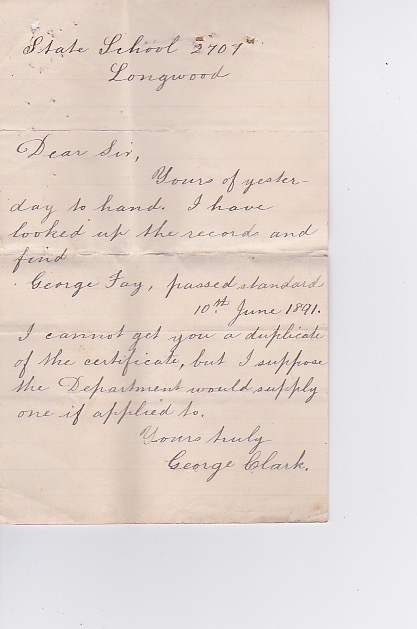 State School 2707
Longwood
Dear Sir,
Yours of yester-
day to hand. I have
looked up the records and
find
George Fay, passed standard
10th June 1891.
I cannot get you a duplicate
of the certificate, but I suppose
the Department would supply
one if applied to.
Yours truly
George Clark.